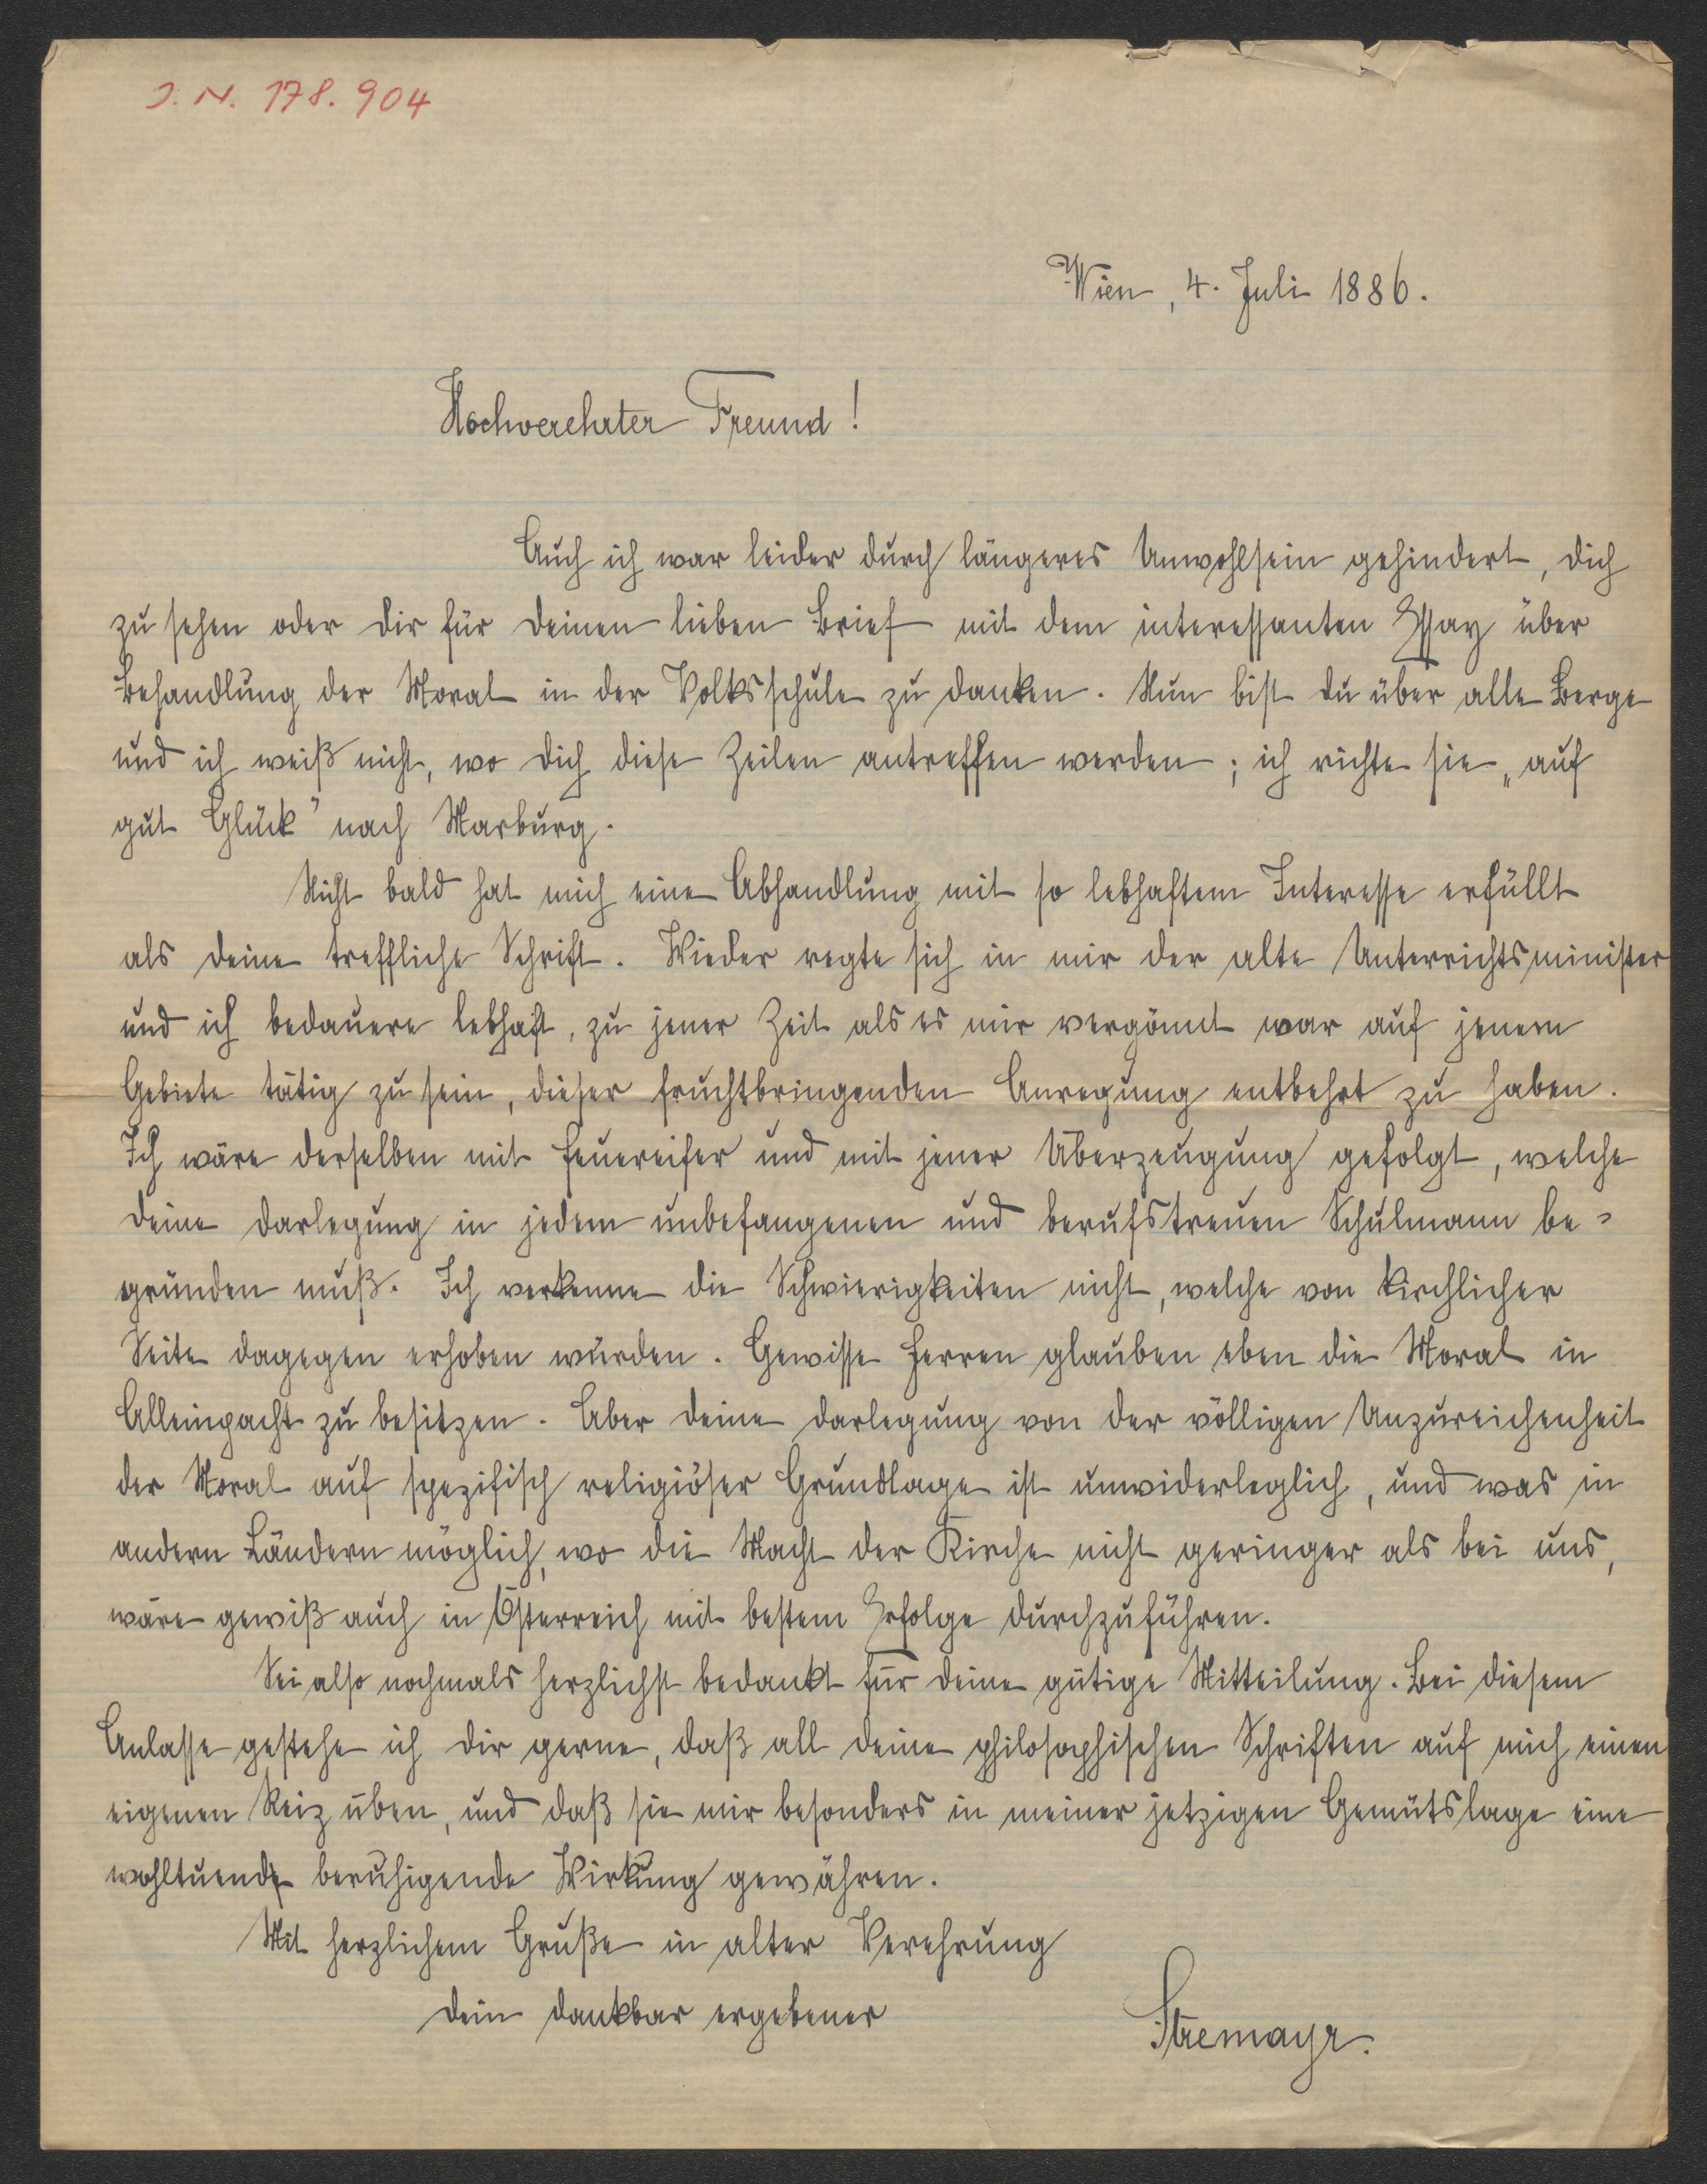 J. N. 178.904
Wien, 4. Juli 1886.
Hochverehrter Freund!
Auch ich war leider durch längeres Unwohlsein gehindert, dich
zu sehen oder dir für deinen lieben Brief mit dem interessanten Essay über
Behandlung der Moral in der Volksschule zu danken. Nun bist du über alle Berge
und ich weiß nicht, wo dich diese Zeilen antreffen werden; ich richte sie „auf
gut Glück" nach Marburg.
Nicht bald hat mich eine Abhandlung mit so lebhaftem Interesse erfüllt
als deine treffliche Schrift. Wieder regte sich in mir der alte Unterrichtsminister
und ich bedauere lebhaft, zu jener Zeit als es mir vergönnt war auf jenem
Gebiete tätig zu sein, dieser fruchtbringenden Anregung entbehrt zu haben.
Ich wäre derselben mit Feuereifer und mit jener Überzeugung gefolgt, welche
deine Darlegung in jedem unbefangenen und berufstreuen Schulmann be-
gründen muß. Ich verkenne die Schwierigkeiten nicht, welche von kirchlicher
Seite dagegen erhoben würden. Gewisse Herren glauben eben die Moral in
Alleinpacht zu besitzen. Aber deine Darlegung von der völligen Unzureichenheit
der Moral auf spezifisch religiöser Grundlage ist unwiderleglich, und was in
andern Ländern möglich, wo die Macht der Kirche nicht geringer als bei uns,
wäre gewiß auch in Österreich mit bestem Erfolge durchzuführen.
Sei also nochmals herzlichst bedankt für deine gütige Mitteilung. Bei diesem
Anlasse gestehe ich dir gerne, daß all deine philosophischen Schriften auf mich einen
eigenen Reiz üben, und daß sie mir besonders in meiner jetzigen Gemütslage eine
wohltuend beruhigende Wirkung gewähren.
Mit herzlichem Gruße in alter Verehrung
dein dankbar ergebener
Stremayr.